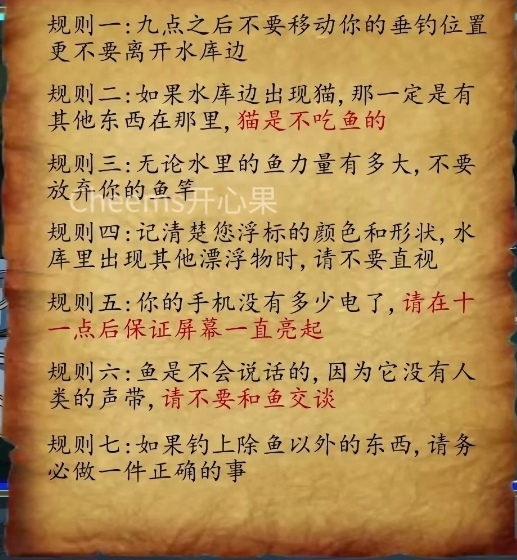 规则一:九点之后不要移动你的垂钓位置
更不要离开水库边
规则二:如果水库边出现猫,那一定是有
其他东西在那里,猫是不吃鱼的
规则三:无论水里的鱼力量有多大,不要
放弃你的鱼竿
Cheems开心果
规则四:记清楚您浮标的颜色和形状,水
库里出现其他漂浮物时,请不要直视
规则五:你的手机没有多少电了,请在十
一点后保证屏幕一直亮起
规则六:鱼是不会说话的,因为它没有人
类的声带,请不要和鱼交谈
规则七:如果钓上除鱼以外的东西,请务
必做一件正确的事